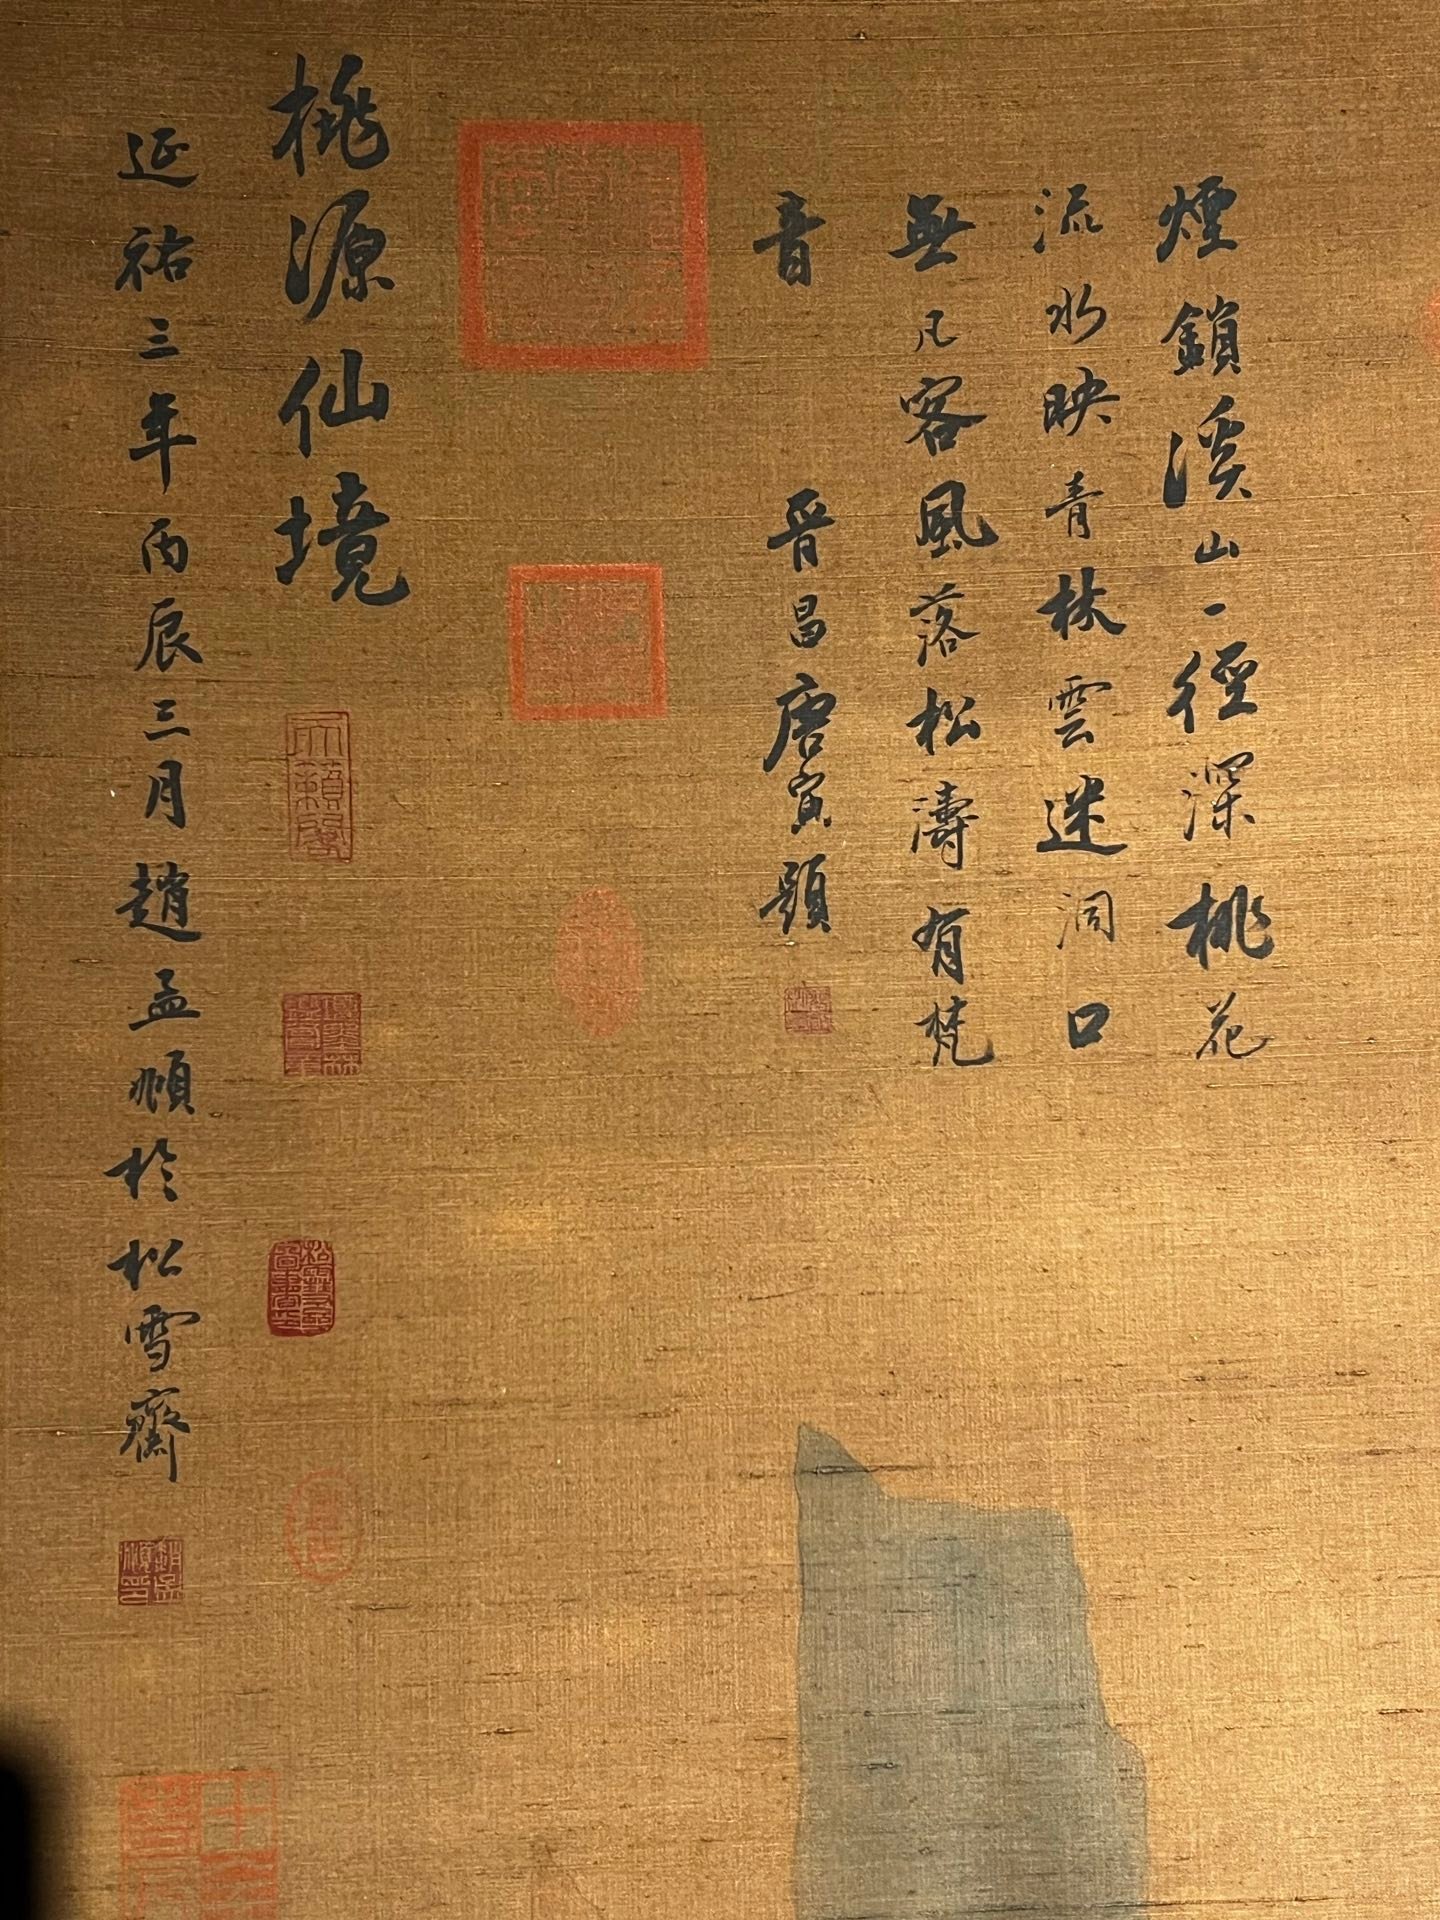 煙鎖溪山一徑深桃花
流水映青林雲迷洞口
無凡客風落松濤有梵
音
晉昌唐寅題
桃源仙境
延祐三年丙辰三月趙孟頫於松雪齋
天籟閣
趙孟頫印